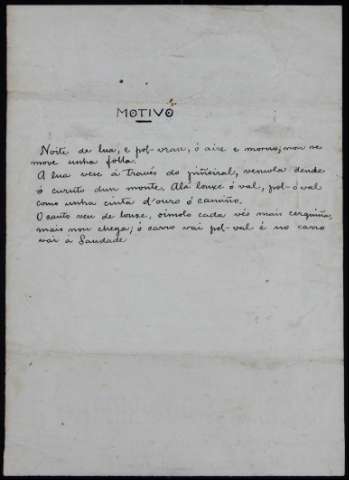 MOTIVO
Noite de lua, e pol-vran, ó aire e morno, non se
move unha folla.
A lua vese á través do piñeiral, vemola dende
ó curuto dun monte. Alá lonxe ó val, pol-ó val
como unha cinta d'ouro ó camiño.
O canto ven de lonxe, oimolo cada vés mais cerquiña,
mais non chega, ó carro vai pol-val é no carro
vai a Saudade